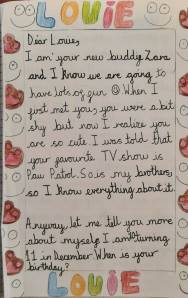 LOUIE
Dear Louie,
I am your new buddy Zara
and I know we are going to
have lots of fun ☺ When I
first met you, you were a bit
shy but now I realize you
are so cute I was told that
your favourite TV show is
Paw Patrol. So is my brothers,
so I know everything about it.
Anyway, let me tell you more
about myself I am turning
11 in December When is your
birthday?
LOUIE